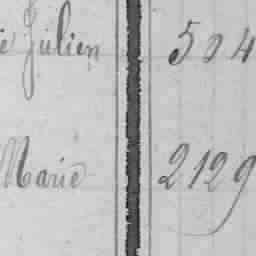 Julien 504
Marie 2129